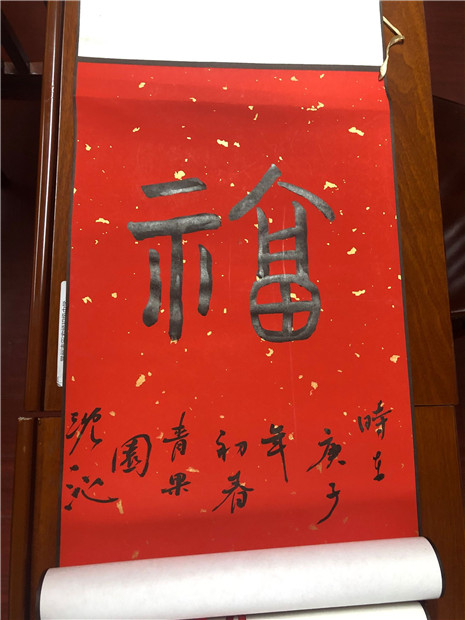 福
時在
庚子
年
初春
青果
園